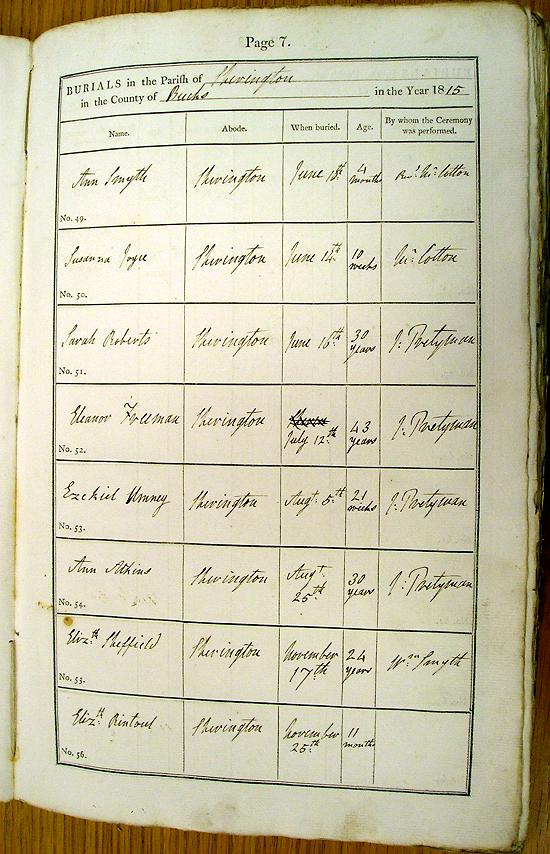 Page 7.
BURIALS in the Parish of Sherington
in the County of Bucks in the Year 1815
Name. Abode. When buried. Age. By whom the Ceremony was performed.
Ann Smyth Sherington June 4 months Revd. Mr. Cotton
No. 49.
Susanna Joyce Sherington June 14th 10 weeks Mr. Cotton
No. 50.
Sarah Roberts Sherington June 16th 30 years J: Pretyman
No. 51.
Eleanor Freeman Sherington July 12th 43 years J: Pretyman
No. 52.
Ezekiel Umney Sherington Augt. 5th 21 weeks J: Pretyman
No. 53.
Ann Atkins Sherington Augt. 25th 30 years J: Pretyman
No. 54.
Elizth Sheffield Sherington November 17th 24 years Wm Smyth
No. 55.
Elizth Rintoul Sherington November 25th 11 months
No. 56.